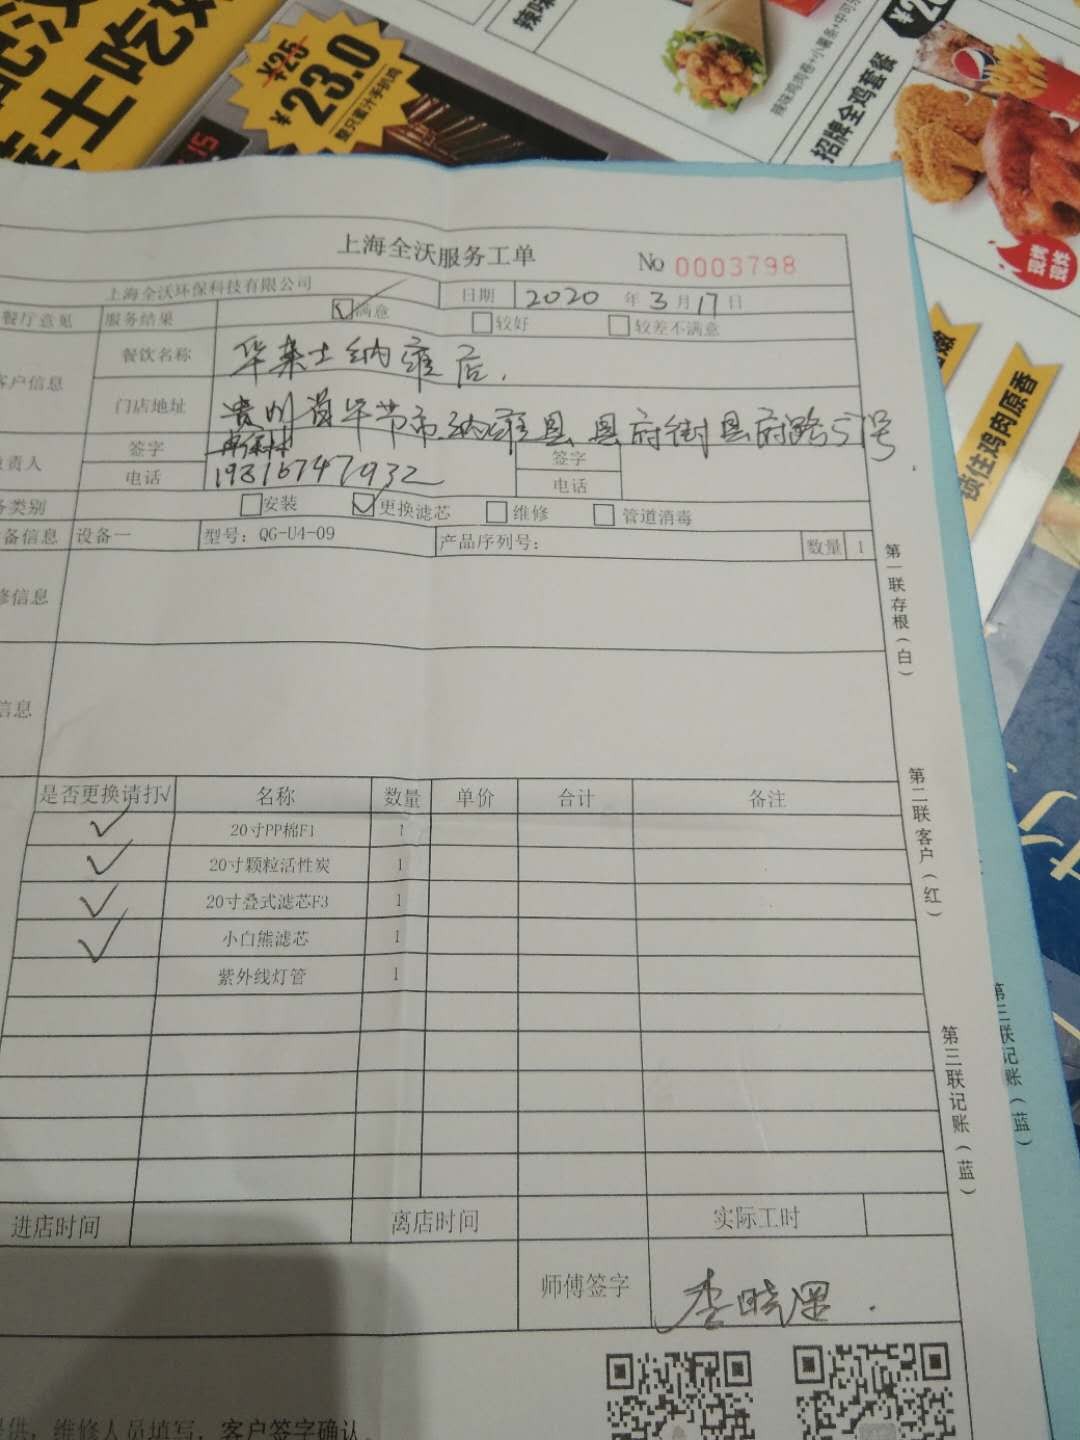 ¥25
¥23.0
招牌全鸡套餐
上海全沃服务工单 No 0003798
上海全沃环保科技有限公司 日期 2020 年 3 月 17 日
餐厅意见 服务结果 满意 较好 较差不满意
客户信息 餐饮名称 华莱士纳雍店.
门店地址 贵州省毕节市纳雍县县府街县府路57号
签字 签字
电话 电话
安装 更换滤芯 维修 管道消毒
设备一 型号：QG-U4-09 产品序列号： 数量 1
修信息
信息
是否更换请打√ 名称 数量 单价 合计 备注
20寸PP棉F1 1
20寸颗粒活性炭 1
20寸叠式滤芯F3 1
小白熊滤芯 1
紫外线灯管 1
进店时间 离店时间 实际工时
师傅签字
维修人员填写，客户签字确认
第一联存根（白）
第二联客户（红）
第三联记账（蓝）
第三联记账（蓝）
锁住鸡肉原香